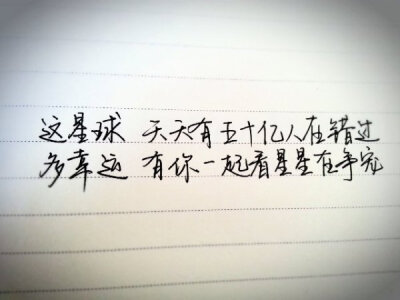 这星球 天天有五十亿人在错过
多幸运 有你一起看星星在争宠